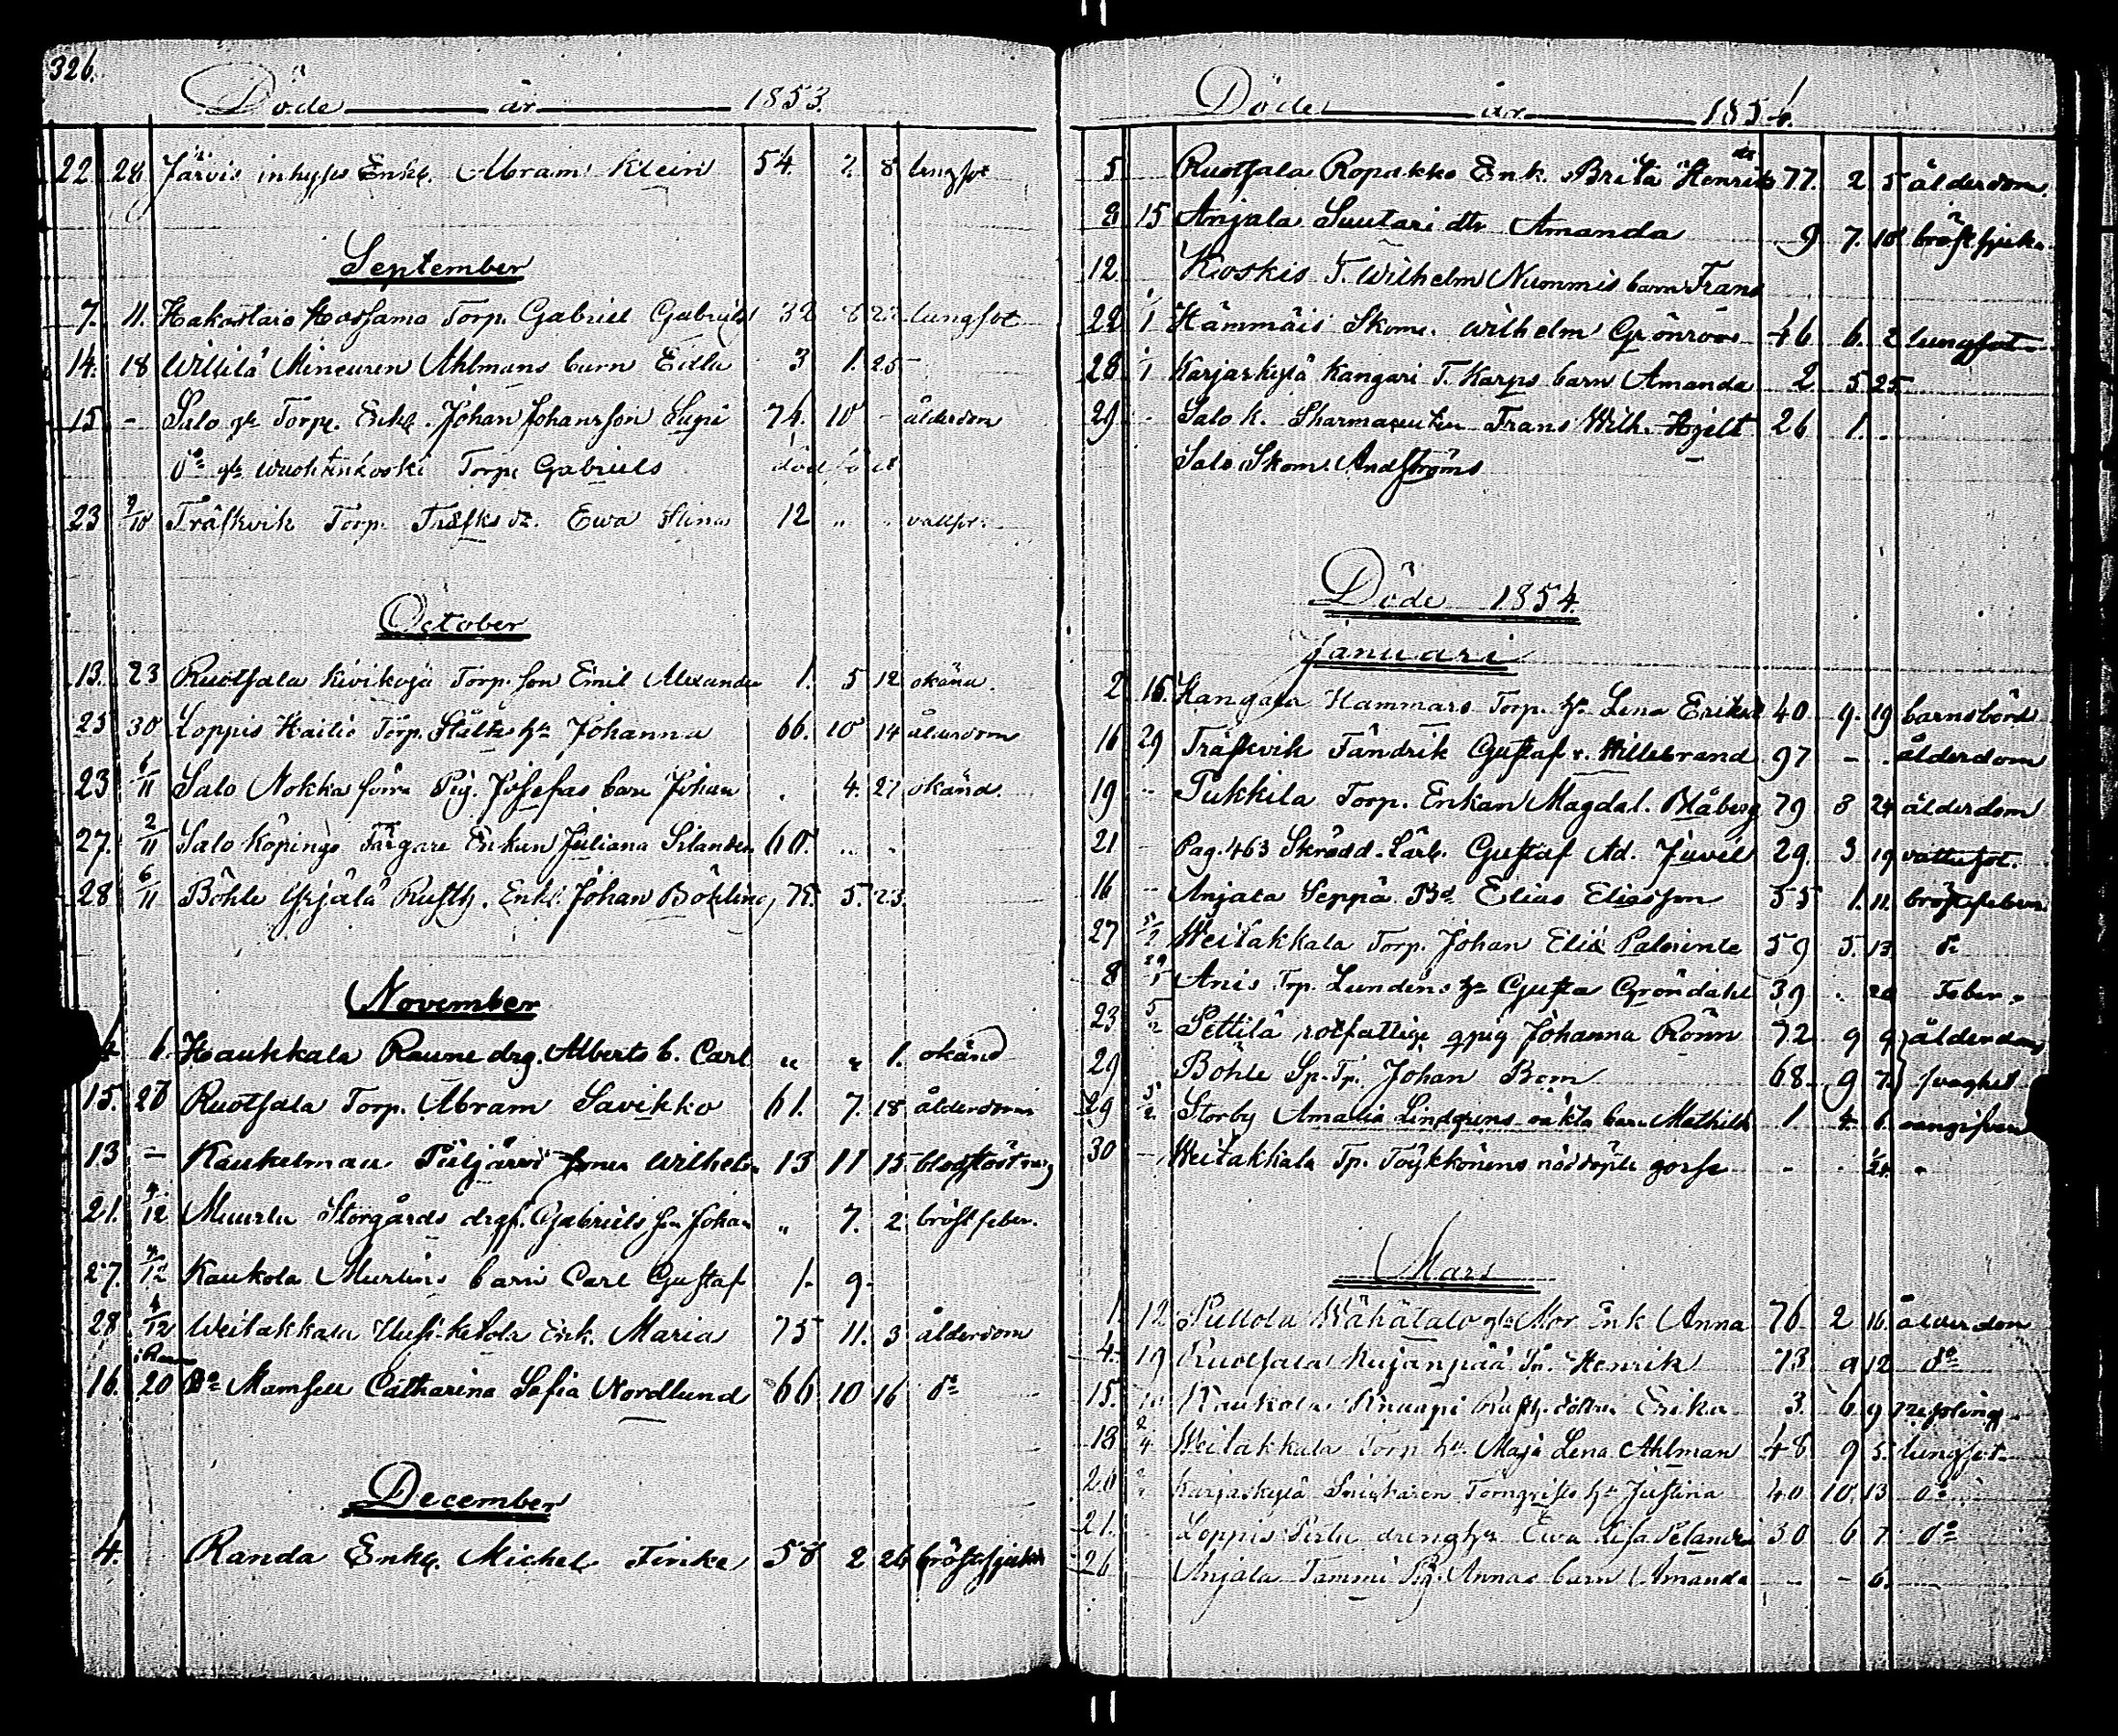 326.
Döde år 1853.
22. 28. Järvis inhyses Enkg. Abram Klein 54. 2. 8 lungsot
September
7. 11. Hakostaro Hossama Torp. Gabriel Gabriels 32 8 22 lungsot
14. 18 Willilä Mineuren Ahlmans barn Edla 3 1. 25 -
15. - Salo gk Torp. Enkg. Johan Johansson Supi 74. 10 - ålderdom
do gk Torp. Gabriels död
23 9/10 Träskvik Torp. Träsks dr. Ewa Stina 12 " " vattsot
October
13. 23 Ruotsala Kivikoja Torp. son Emil Alexander 1. 5 12 okänd.
25 30 Loppis Hailio Torp. hu Johanna 66. 10 14 ålderdom
23 6/11 Salo Nokka Pig. Josefas barn Johan . 4. 27 okänd.
27. 2/11 Salo köpings Färgare Enkan Juliana Silander 60. " "
28 6/11 Böhle Yrjälä Rusth. Enkl. Johan Böhling 75. 5. 23.
November
4 6. Haukkala Raune drg. Alberts b. Carl " " 1. okänd
15. 20 Ruotsala Torp. Abram Savikko 61. 7. 18 ålderdom
13 - Kaukelmaa Pitjärvi sonen Wilhelm 13 11 15 blodstörtning
21. 4/12 Muurla Storgårds drgs. Gabriels son Johan " 7. 2 bröstfeber.
27. 4/12 Kaukola Murlins barn Carl Gustaf 1. 9.
28 4/12 Weitakkala Uusi-Ketola Enk. Maria 75 11. 3 ålderdom
16. 20 Do Mamsell Catharina Sofia Nordlund 66 10 16 do
December
4. Randa Enkg. Michel Finke 58 2 26 bröstsjuka
Döde år 1854.
5 Ruotsala Ropakko Enk. Brita Henriks dr 77. 2 5 ålderdom.
8 15 Anjala Suutari dtr Amanda 9 7. 10 bröstsjuka
12. Koskis T. Wilhelm Nummis barn Frans
22 1/1 Hämmäis Skom. Wilhelm Grönroos 46 6. 2 lungsot
28 1/1 Karjaskylä Kangari T. Karps barn Amanda 2 5 25
29 - Salo k. Pharmaceuten Frans Wilh. Hjelt 26 1. .
Salo Skom. Andströms
Döde 1854.
Januari
2 15. Kangasa Hammars Torp. hu Lena Eriksd 40 9. 19 barnsbörd
16 29 Träskvik Fändrik Gustaf v. Willebrand 97 - . ålderdom
19 - Pukkila Torp. Enkan Magdal. Blåberg 79 3 24 ålderdom
21 - Pag. 463 Skrädd. Lärl. Gustaf Ad. Juvel 29. 3 19 vattusot.
16 - Anjala Seppä Bd. Elias Eliasson 55 1. 11. bröstfeber
27 5/2 Weitakkala Torp. Johan Elis Palminte 59 5. 13. do
8 29/1 Anis Trp. Lundens hu Gusta Gröndahl 39 . 20 Feber
23 5/2 Pettilä rotfattige gpig Johanna Rönn 72 9 9 ålderdoms
29 Böhle Sp. Tp. Johan Bom 68. 9 7. svaghet
29 5/2 Storby Amalia Lindgrens oäkta barn Mathild 1. 4 6. oangifven
30 - Weitakkala Tp. Töykkönens nöddöpte gosse - . 1/24.
Mars
1. 12 Pullola Wähätalo gk Mor Enk Anna 76 2 16. ålderdom
4. 19 Ruotsala Kujanpää Henrik 73. 9 12 do
15. Kaukola Knaapi Rusth. dottren Erika 3. 6 9
18 2/4 Weitakkala Torp hu Maja Lena Ahlman 48 9 5. lungsot
20 Karjaskylä Snickaren Törnqvists hu Justina 40 10. 13 do
21. Loppis Pertu dreng hu Ewa Lisa Pelander 30 6 7 do
26 Anjala Tammi Pig. Annas barn Amanda - - 6.